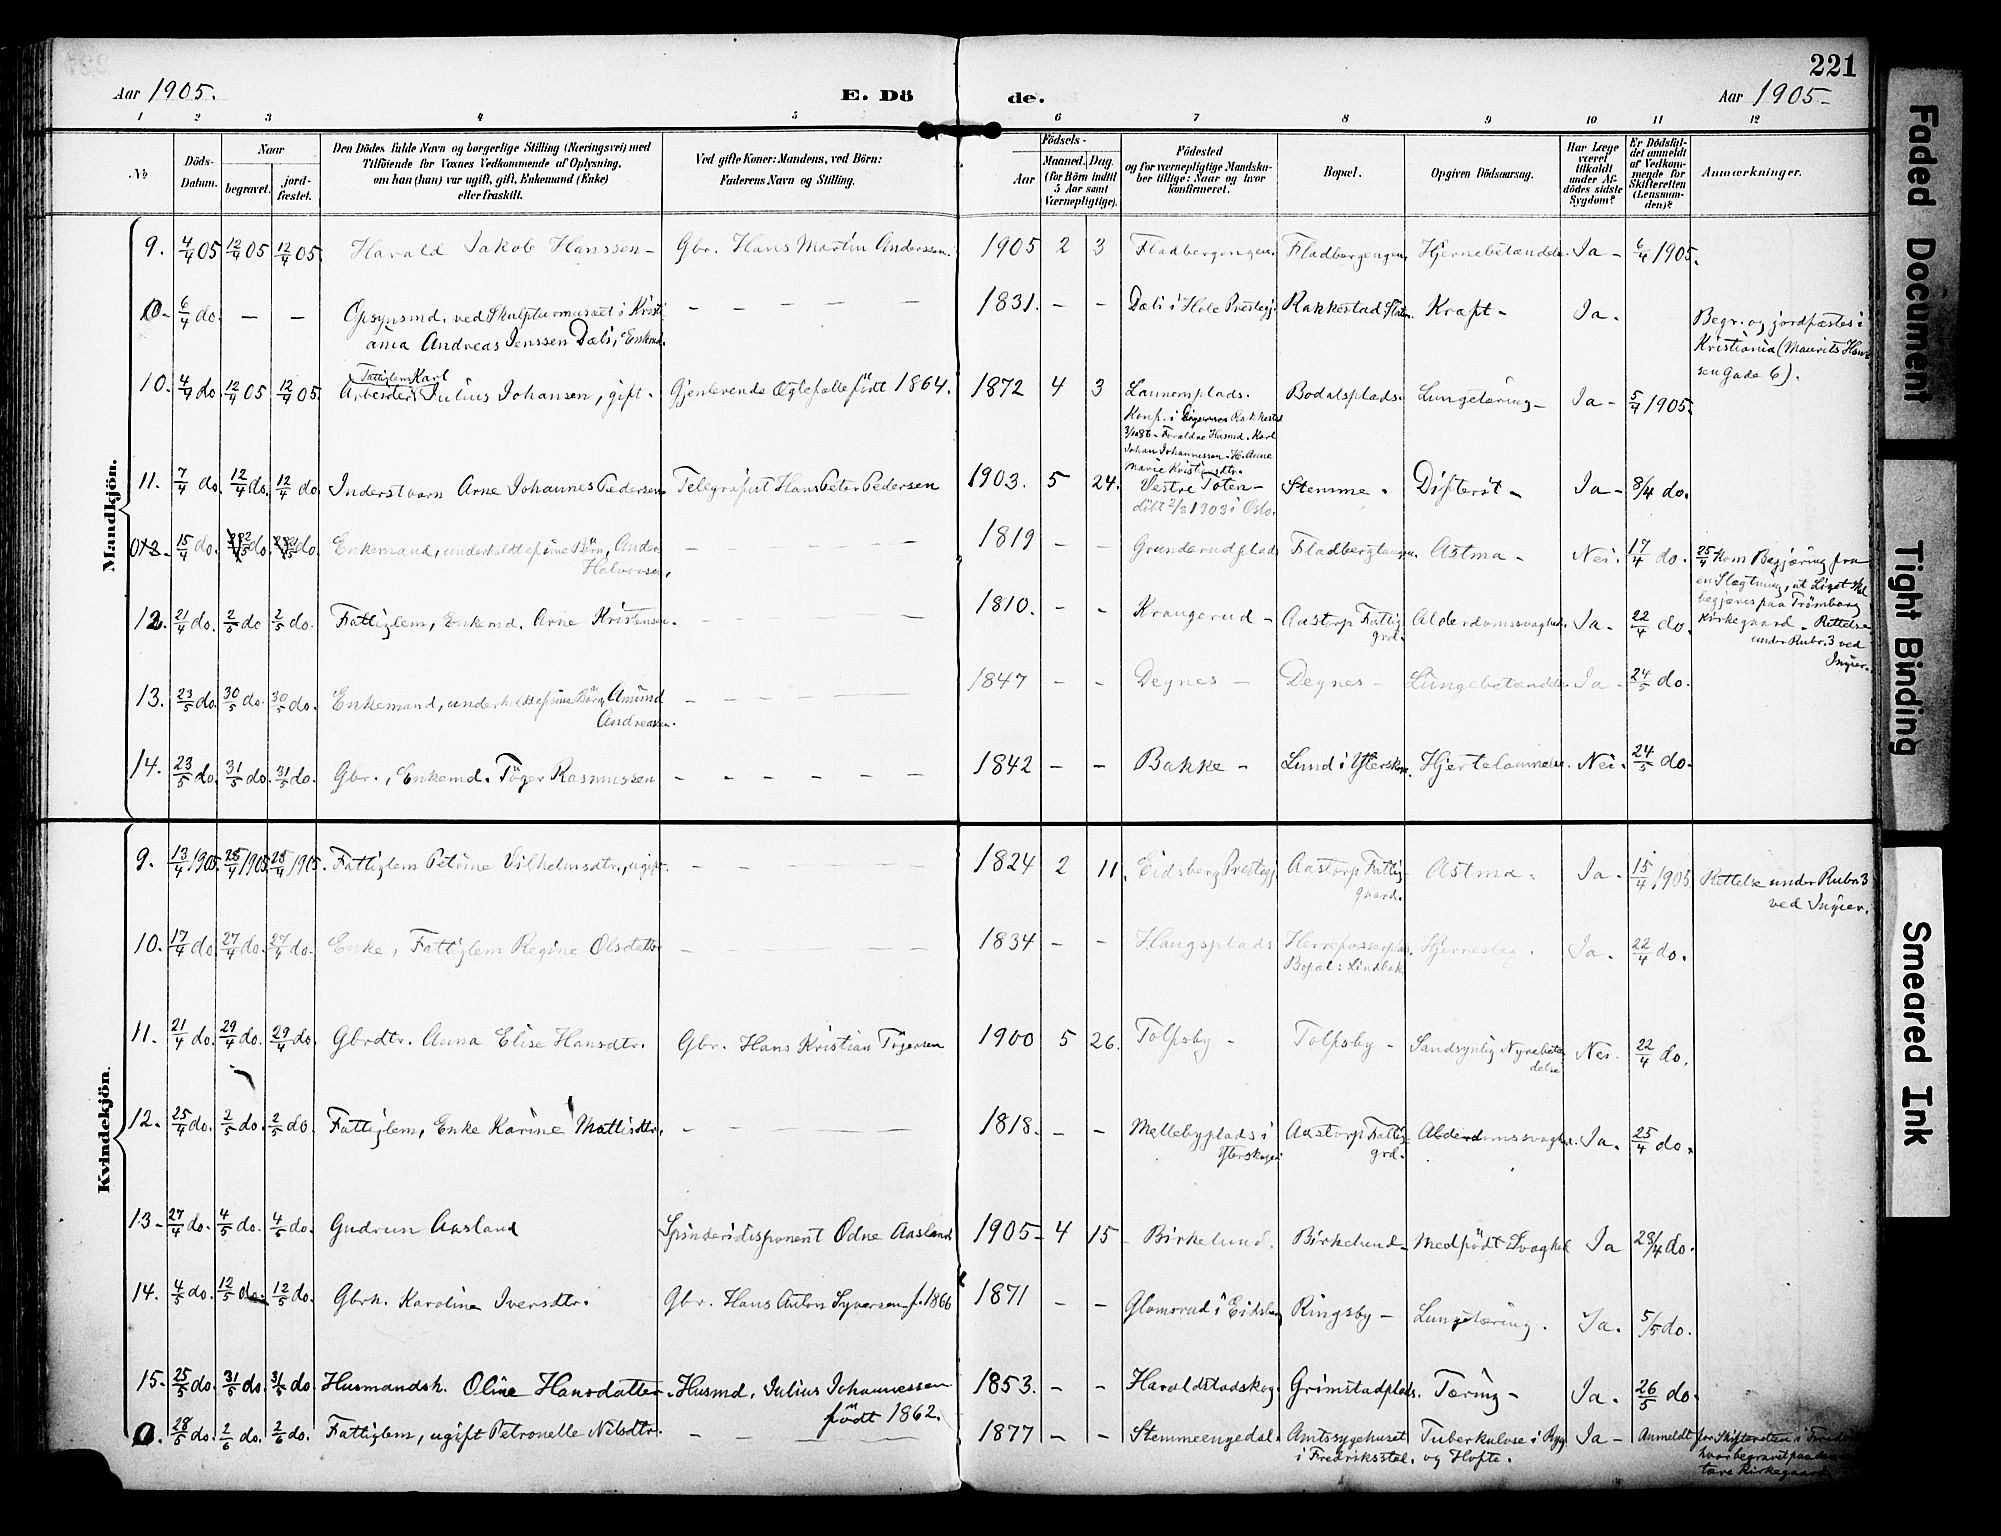 221
Aar 1905.
E. Dö
de.
Aar 1905.
1 2 3 4 5 6 7 8 9 10 11 12
No
Döds-Datum.
Naar
begravet.
jord-fæstet.
Den Dödes fulde Navn og borgerlige Stilling (Næringsvei) med
Tilföiende for Voxnes Vedkommende af Oplysning,
om han (hun) var ugift, gift, Enkemand (Enke)
eller fraskilt.
Ved gifte Koner: Mandens, ved Börn:
Faderens Navn og Stilling.
Födsels-
Aar
Maaned. Dag.
(for Börn indtil
5 Aar samt
Værnepligtige).
Födested
og for værnepligtige Mandska-
ber tillige: Naar og hvor
konfirmeret.
Bopæl.
Opgiven Dödsaarsag.
Har Læge
været
tilkaldt
under Af-
dödes sidste
Sygdom?
Er Dödsfal-
det anmeldt
af Vedkom-
mende for
Skifteretten
(Lensman-
den)?
Anmærkninger.
Mandkjön.
9. 4/4 05 12/4 05 12/4 05. Harald Jakob Hanssen - Gbr. Hans Martin Anderssen. 1905 2 3 Fladbergengen. Fladbergengen. Hjernebetændelse. Ja - 6/4 1905.
0 - 6/4 do. - - Opsynsmd. ved Skulpturmuseet i Kristi
ania Andreas Jenssen Dæli, Enkmd. - - - - - 1831. - - Dæli i Hole Prestegj. Rakkestad Station. Kræft - Ja.
Begr. og jordfæstes i
Kristiania (Maurits Han
sen Gade 6).
10. 4/4 do. 12/4 05 12/4 05. Fattiglem Karl
Arbeider Julius Johansen, gift - Gjenlevende Ægtefælle født 1864. 1872 4 3 Launemplads. Bodalsplads. Lungetæring - Ja - 5/4 1905.
Konf. i Degernes Rakkestad
Forældre Husmd. Karl
Johan Johannessen - H. Anne
Marie Kristensdtr.
11. 7/4 do. 12/4 do. 12/4 do. Inderstbarn Arne Johannes Pedersen - Telegrafist Hans Peter Pedersen 1903. 5 24. Vestre Toten - Stemme. Difterit - Ja - 8/4 do.
døbt 2/8 1903 i Oslo.
15/4 do. Enkemand, underholdt af sine Børn, Anders
Halvorsen, - - - - - 1819 - - Grunderudplads Fladbergtangen. Astma - Nei. 17/4 do.
25/4 kom Begjæring fra
en Slægtning, at Liget skal
begraves paa Trømborg
Kirkegaard - Rettelse
under Rubr. 3 ved
Ingier.
12. 21/4 do. 2/5 do 2/5 do. Fattiglem, Enkemd. Arne Kristensen. - - - - - 1810. - - Krangerud - Aastorp Fattig
grd. Alderdomssvaghed. Ja. 22/4 do.
13. 23/5 do. 30/5 do. 30/5 do. Enkemand, underholdt af sine Børn, Amund
Andreassen. - - - - - 1847 - - Degnes - Degnes - Lungebetændelse Ja - 24/5 do.
14. 23/5 do. 31/5 do. 31/5 do. Gbr., Enkemd. Töger Rasmussen - - - - - 1842 - - Bakke - Lund i Ytterskogn. Hjertelammelse. Nei. 24/5 do.
Kvindekjön.
9. 13/4 1905. 28/4 1905. 28/4 1905. Fattiglem Petrine Vilhelmsdtr., ugift - - - - - 1824 2 11. Eidsberg Prestegj. Aastorp Fattig
gaard. Astma. Ja. 15/4 1905 Rettelse under Rubr. 3
ved Ingier.
10. 17/4 do. 27/4 do. 27/4 do. Enke, Fattiglem Regine Olsdatter - - - - - 1834 - - Haugsplads Herrefosserplads.
Bopæl: Lindbæk Hjerneslag. Ja. 22/4 do.
11. 21/4 do. 29/4 do. 29/4 do. Gbrdtr. Anna Elise Hansdtr. Gbr. Hans Kristian Tögersen 1900 5 26. Tolfsby - Tolfsby - Sandsynlig Nyrebetæn
delse Nei. 22/4 do.
12. 25/4 do. 2/5 do. 2/5 do. Fattiglem, Enke Karine Mattisdtr. - - - - - 1818. - - Mellebyplads i
Ytterskogn Aastorp Fattig
grd. Alderdomssvaghed. Ja. 25/4 do.
13 - 27/4 do. 4/5 do. 4/5 do. Gudrun Aasland Spinderidisponent Odne Aasland 1905 - 4 15 - Birkelund. Birkelund - Medfödt Svaghed Ja 28/4 do.
14. 4/5 do. 12/5 do. 12/5 do. Gbrk. Karoline Iversdtr. Gbr. Hans Anton Syversen f. 1866 1871 - - Glomsrud i Eidsberg Ringsby - Lungetæring. Ja. 5/5 do.
15. 25/5 do. 31/5 do. 31/5 do. Husmandsk. Oline Hansdatter - Husmd. Julius Johannessen
født 1862. 1853. - - Haraldstadskog. Grimstadplads. Tæring - Ja. 26/5 do.
0. 28/5 do. 2/6 do. 2/6 do. Fattiglem, ugift Petronelle Nilsdtr. - - - - - 1877 - - Stemmeengedal. Amtssygehuset
i Fredriksstad. Tuberkulose i Ryg
og Hofte. Ja - Anmeldt for Skifteretten i
hvor begravet paa
tære Kirkegaard
Faded Document
Tight Binding
Smeared Ink